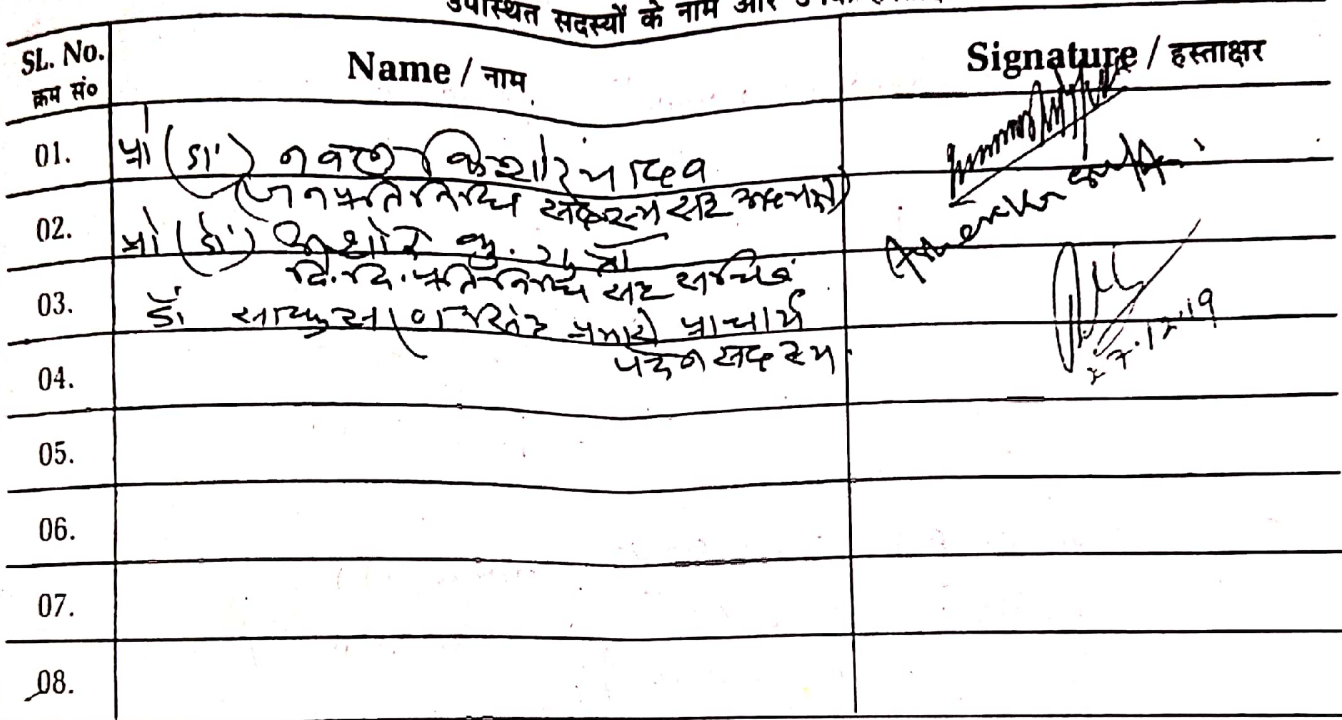 उपस्थित सदस्यों के नाम और
SL. No. Name / नाम Signature / हस्ताक्षर
क्रम सं०
01. प्रो (डा॰) नवल किशोर यादव
(जनप्रतिनिधि सदस्य सह अध्यक्ष)
02. प्रो (डॉ॰) अशोक कु. गुप्ता
वि.वि. प्रतिनिधि सह सचिव
03. डॉ प्रभारी प्राचार्य
पदेन सदस्य
27.12.19
04.
05.
06.
07.
08.